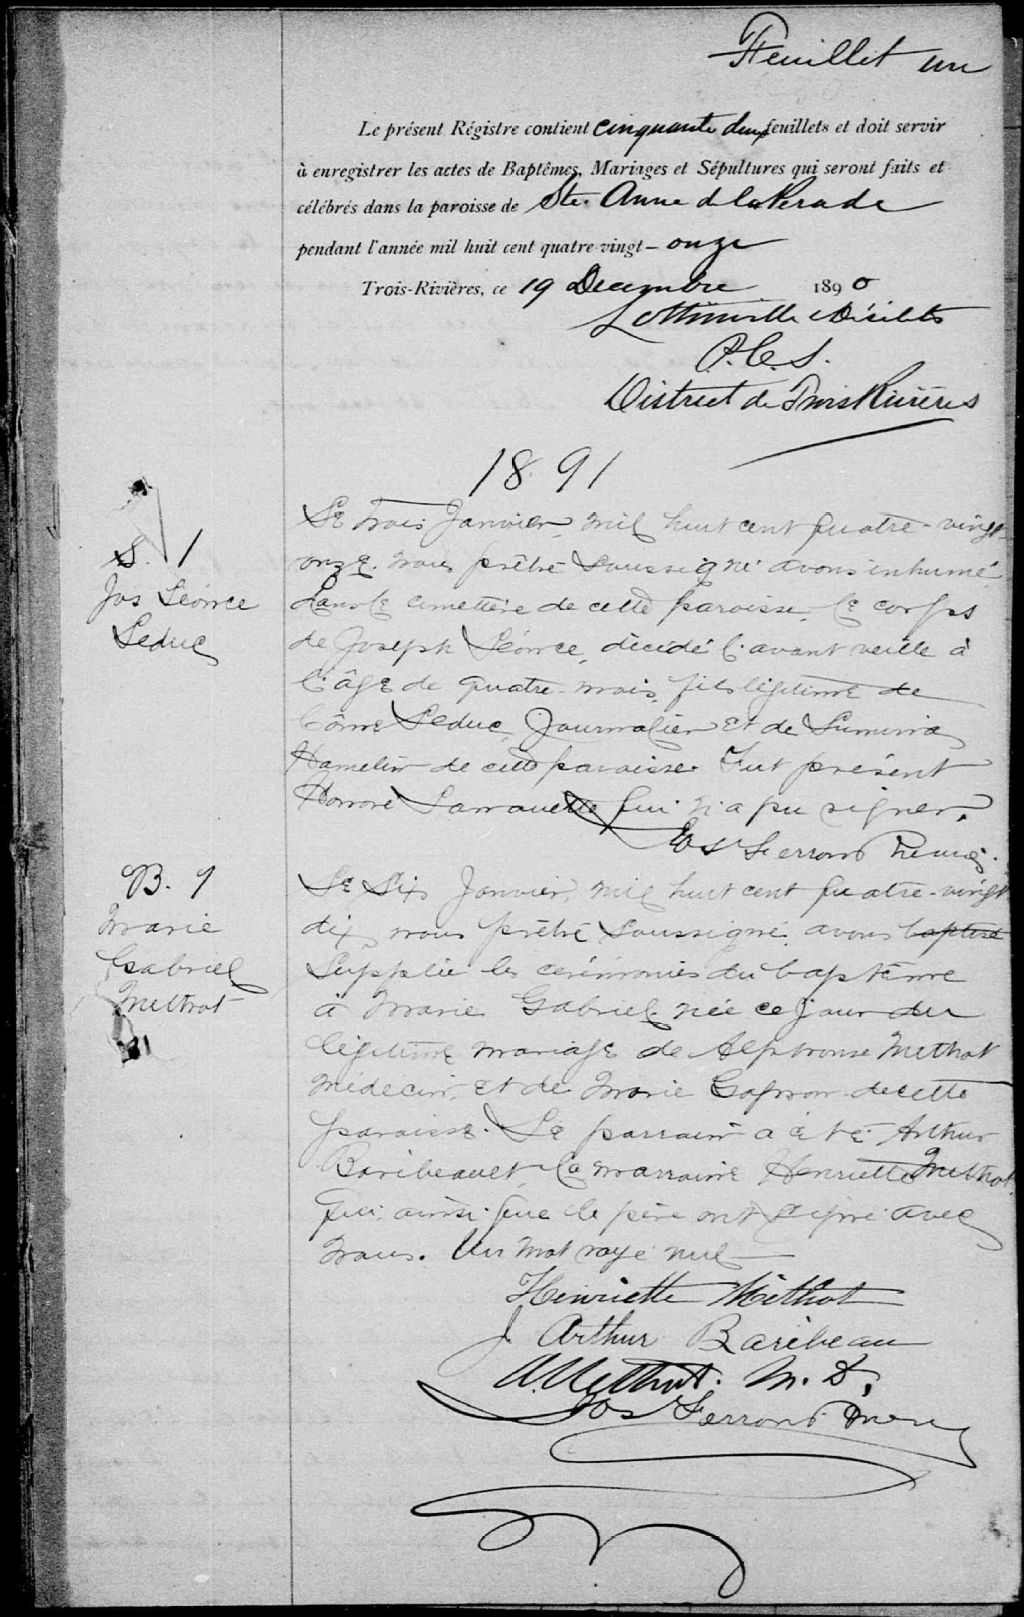 Feuillet un
Le présent Régistre contient cinquante deux feuillets et doit servir
à enregistrer les actes de Baptêmes, Mariages et Sépultures qui seront faits et
célébrés dans la paroisse de Ste. Anne de la Perade
pendant l'année mil huit cent quatre-vingt- onze
Trois-Rivières, ce 19 Decembre 1890
Lottinville Désilets
P.C.S.
District de Trois Rivières
1891
S. 1
Jos Léonce
Leduc
Le trois Janvier mil huit cent quatre-vingt
onze. nous prêtre soussigné avons inhumé
dans le cemetière de cette paroisse, le corps
de Joseph Léonce, décédé l'avant veille à
l'âge de quatre mois, fils légitime de
Côme Leduc, Journalier et de
Hamelin de cette paroisse. Fut présent
Honoré qui n'a pu signer.
Jos Ferron
B. 1
Marie
Gabriel
Methot
Le Six Janvier, mil huit cent quatre-vingt
dix, nous prêtre soussigné avons baptisé
supplée les cérémonies du baptême
à Marie Gabriel née ce jour du
légitime mariage de Alphonse Methot
Médecin, et de Marie Gagnon de cette
paroisse. Le parrain a été Arthur
Baribeault, la marraine Henriette Methot
qui ainsi que le père ont signé avec
nous. Un mot rayé nul
Henriette Méthot
J Arthur Baribeau
A. Methot. M. D.
Jos Ferron